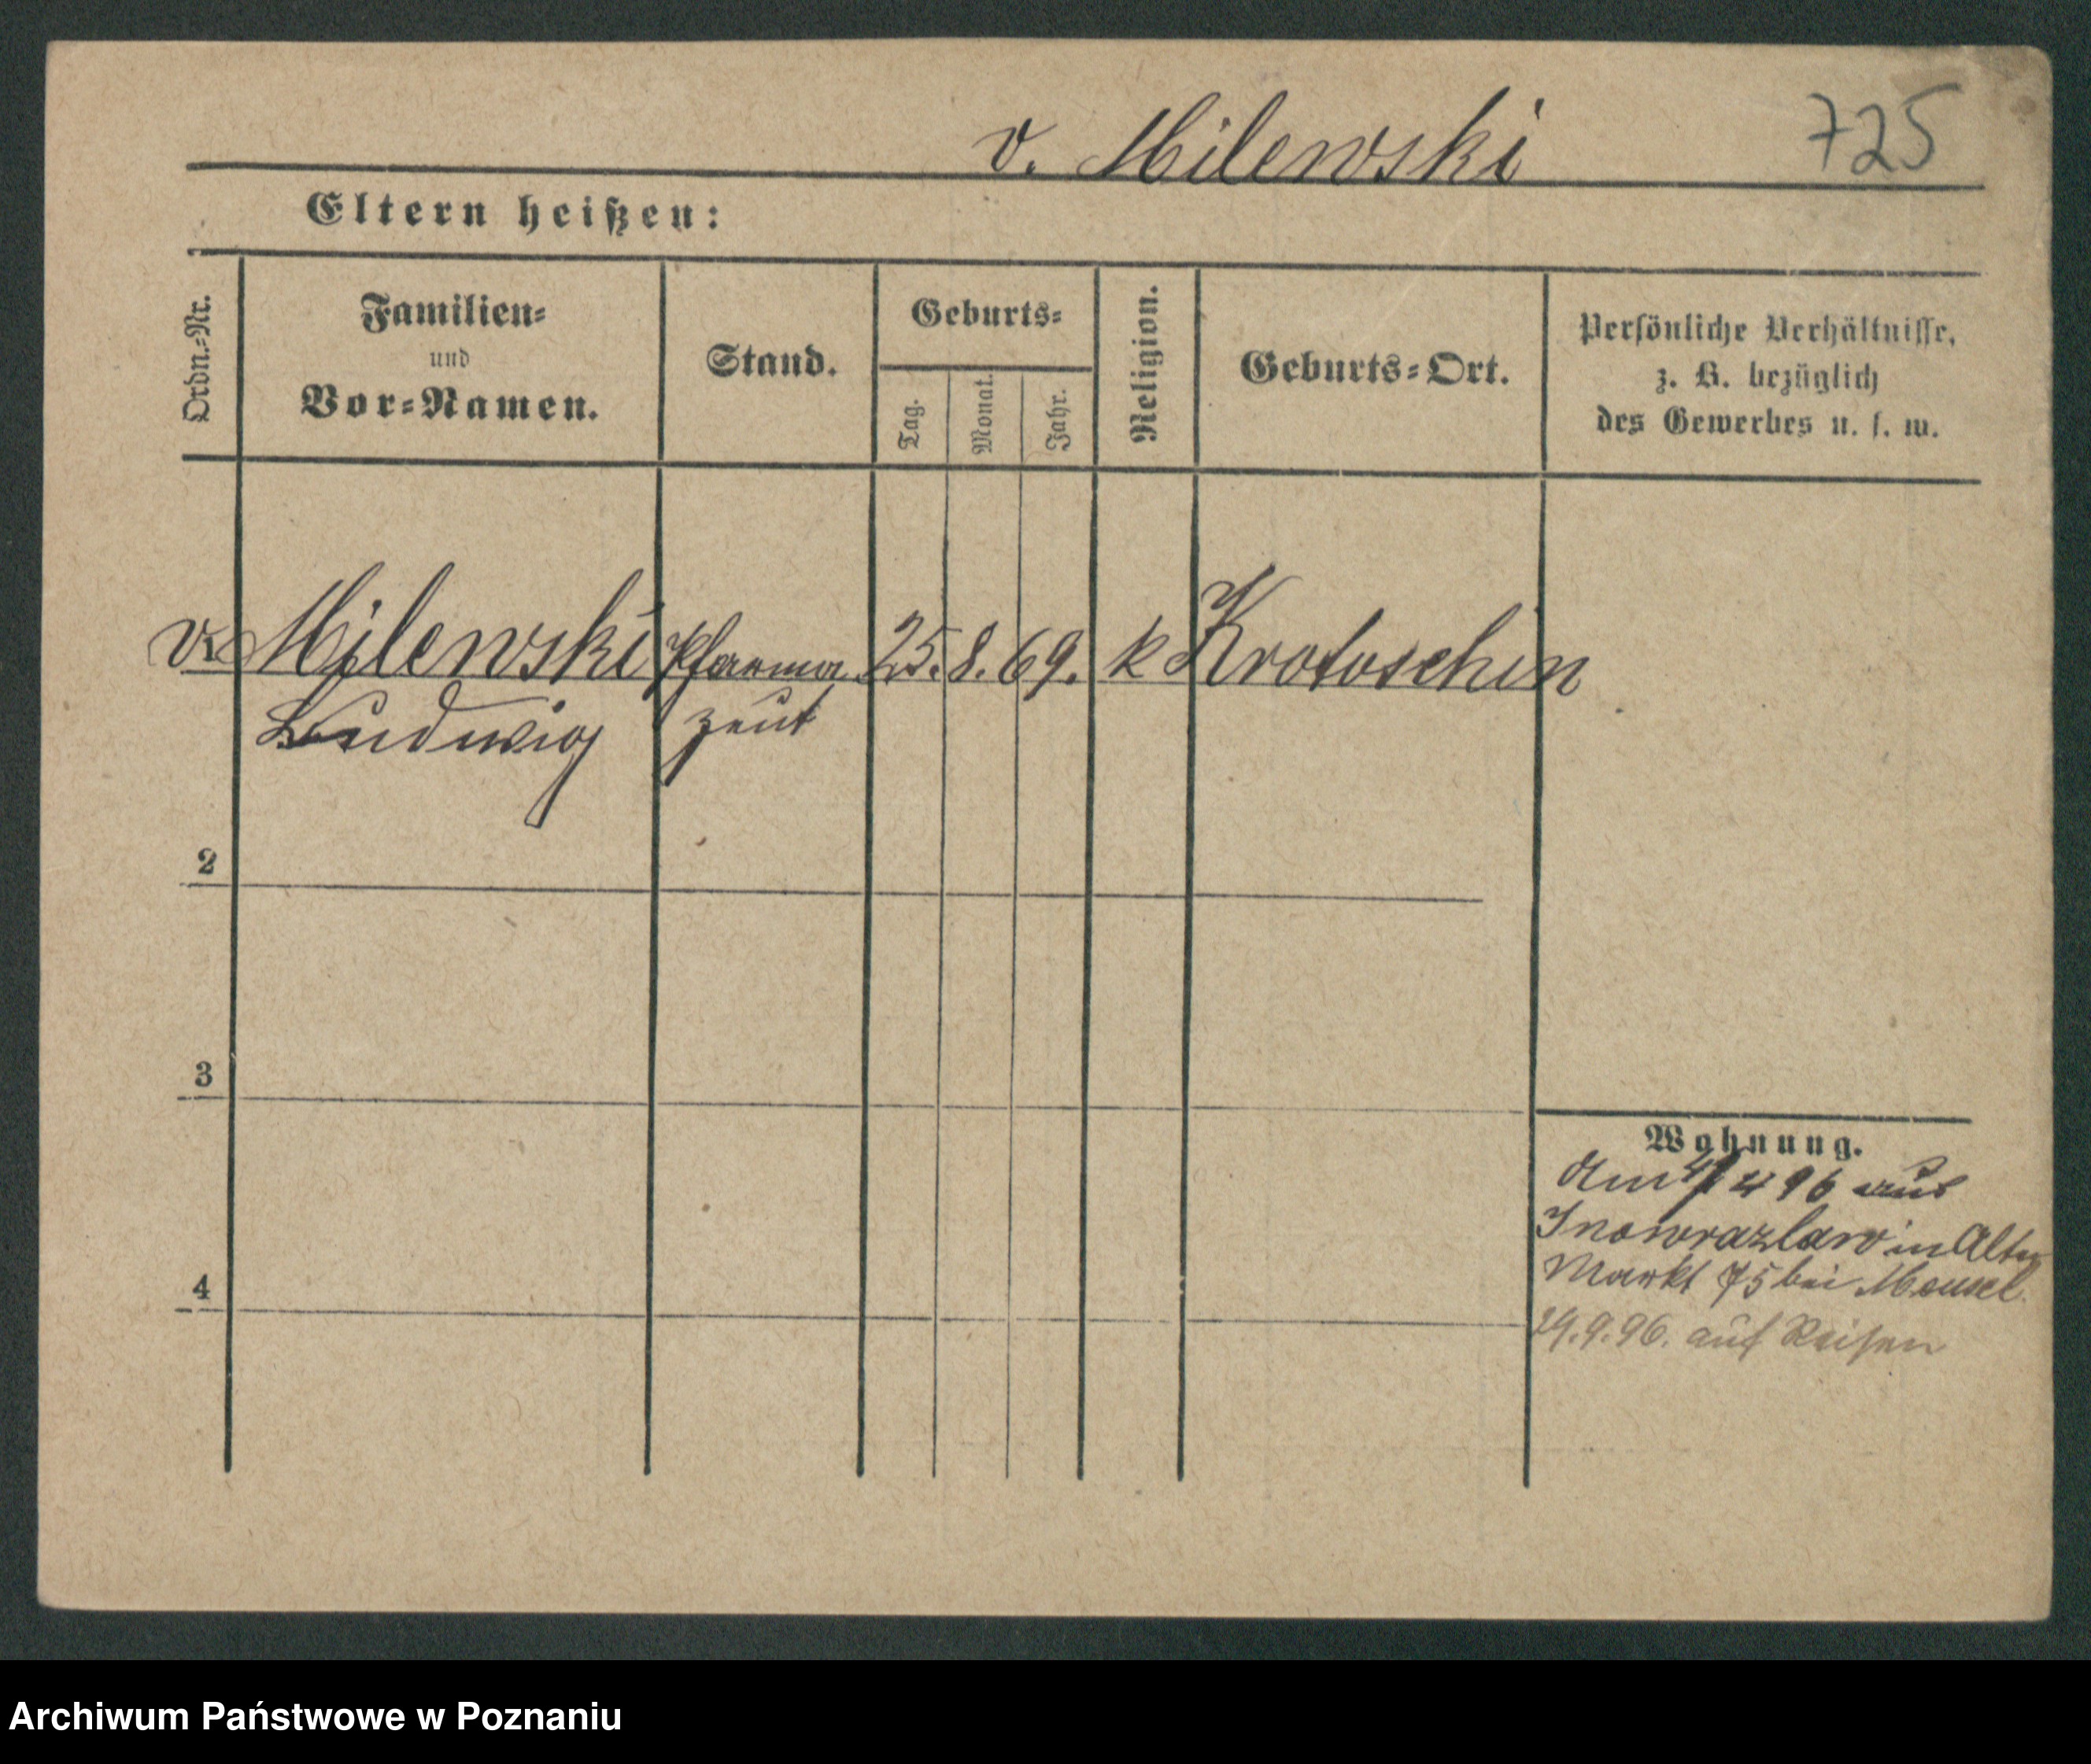 v. Milewski 725
Eltern heißen:
Ordn.-Nr.
Familien-
und
Vor-Namen.
Stand.
Geburts-
Tag.
Monat.
Jahr.
Religion.
Geburts-Ort.
Persönliche Verhältnisse,
z. B. bezüglich
des Gewerbes u. s. w.
v. Milewski Pharma 25. 8. 69. k Krotoschin
Ludwig zeut
2
3
4
Wohnung.
Am 4 96 aus
Inowrazlaw in Alter
Markt 75 bei Mensel
29.9.96. auf Reisen
Archiwum Państwowe w Poznaniu